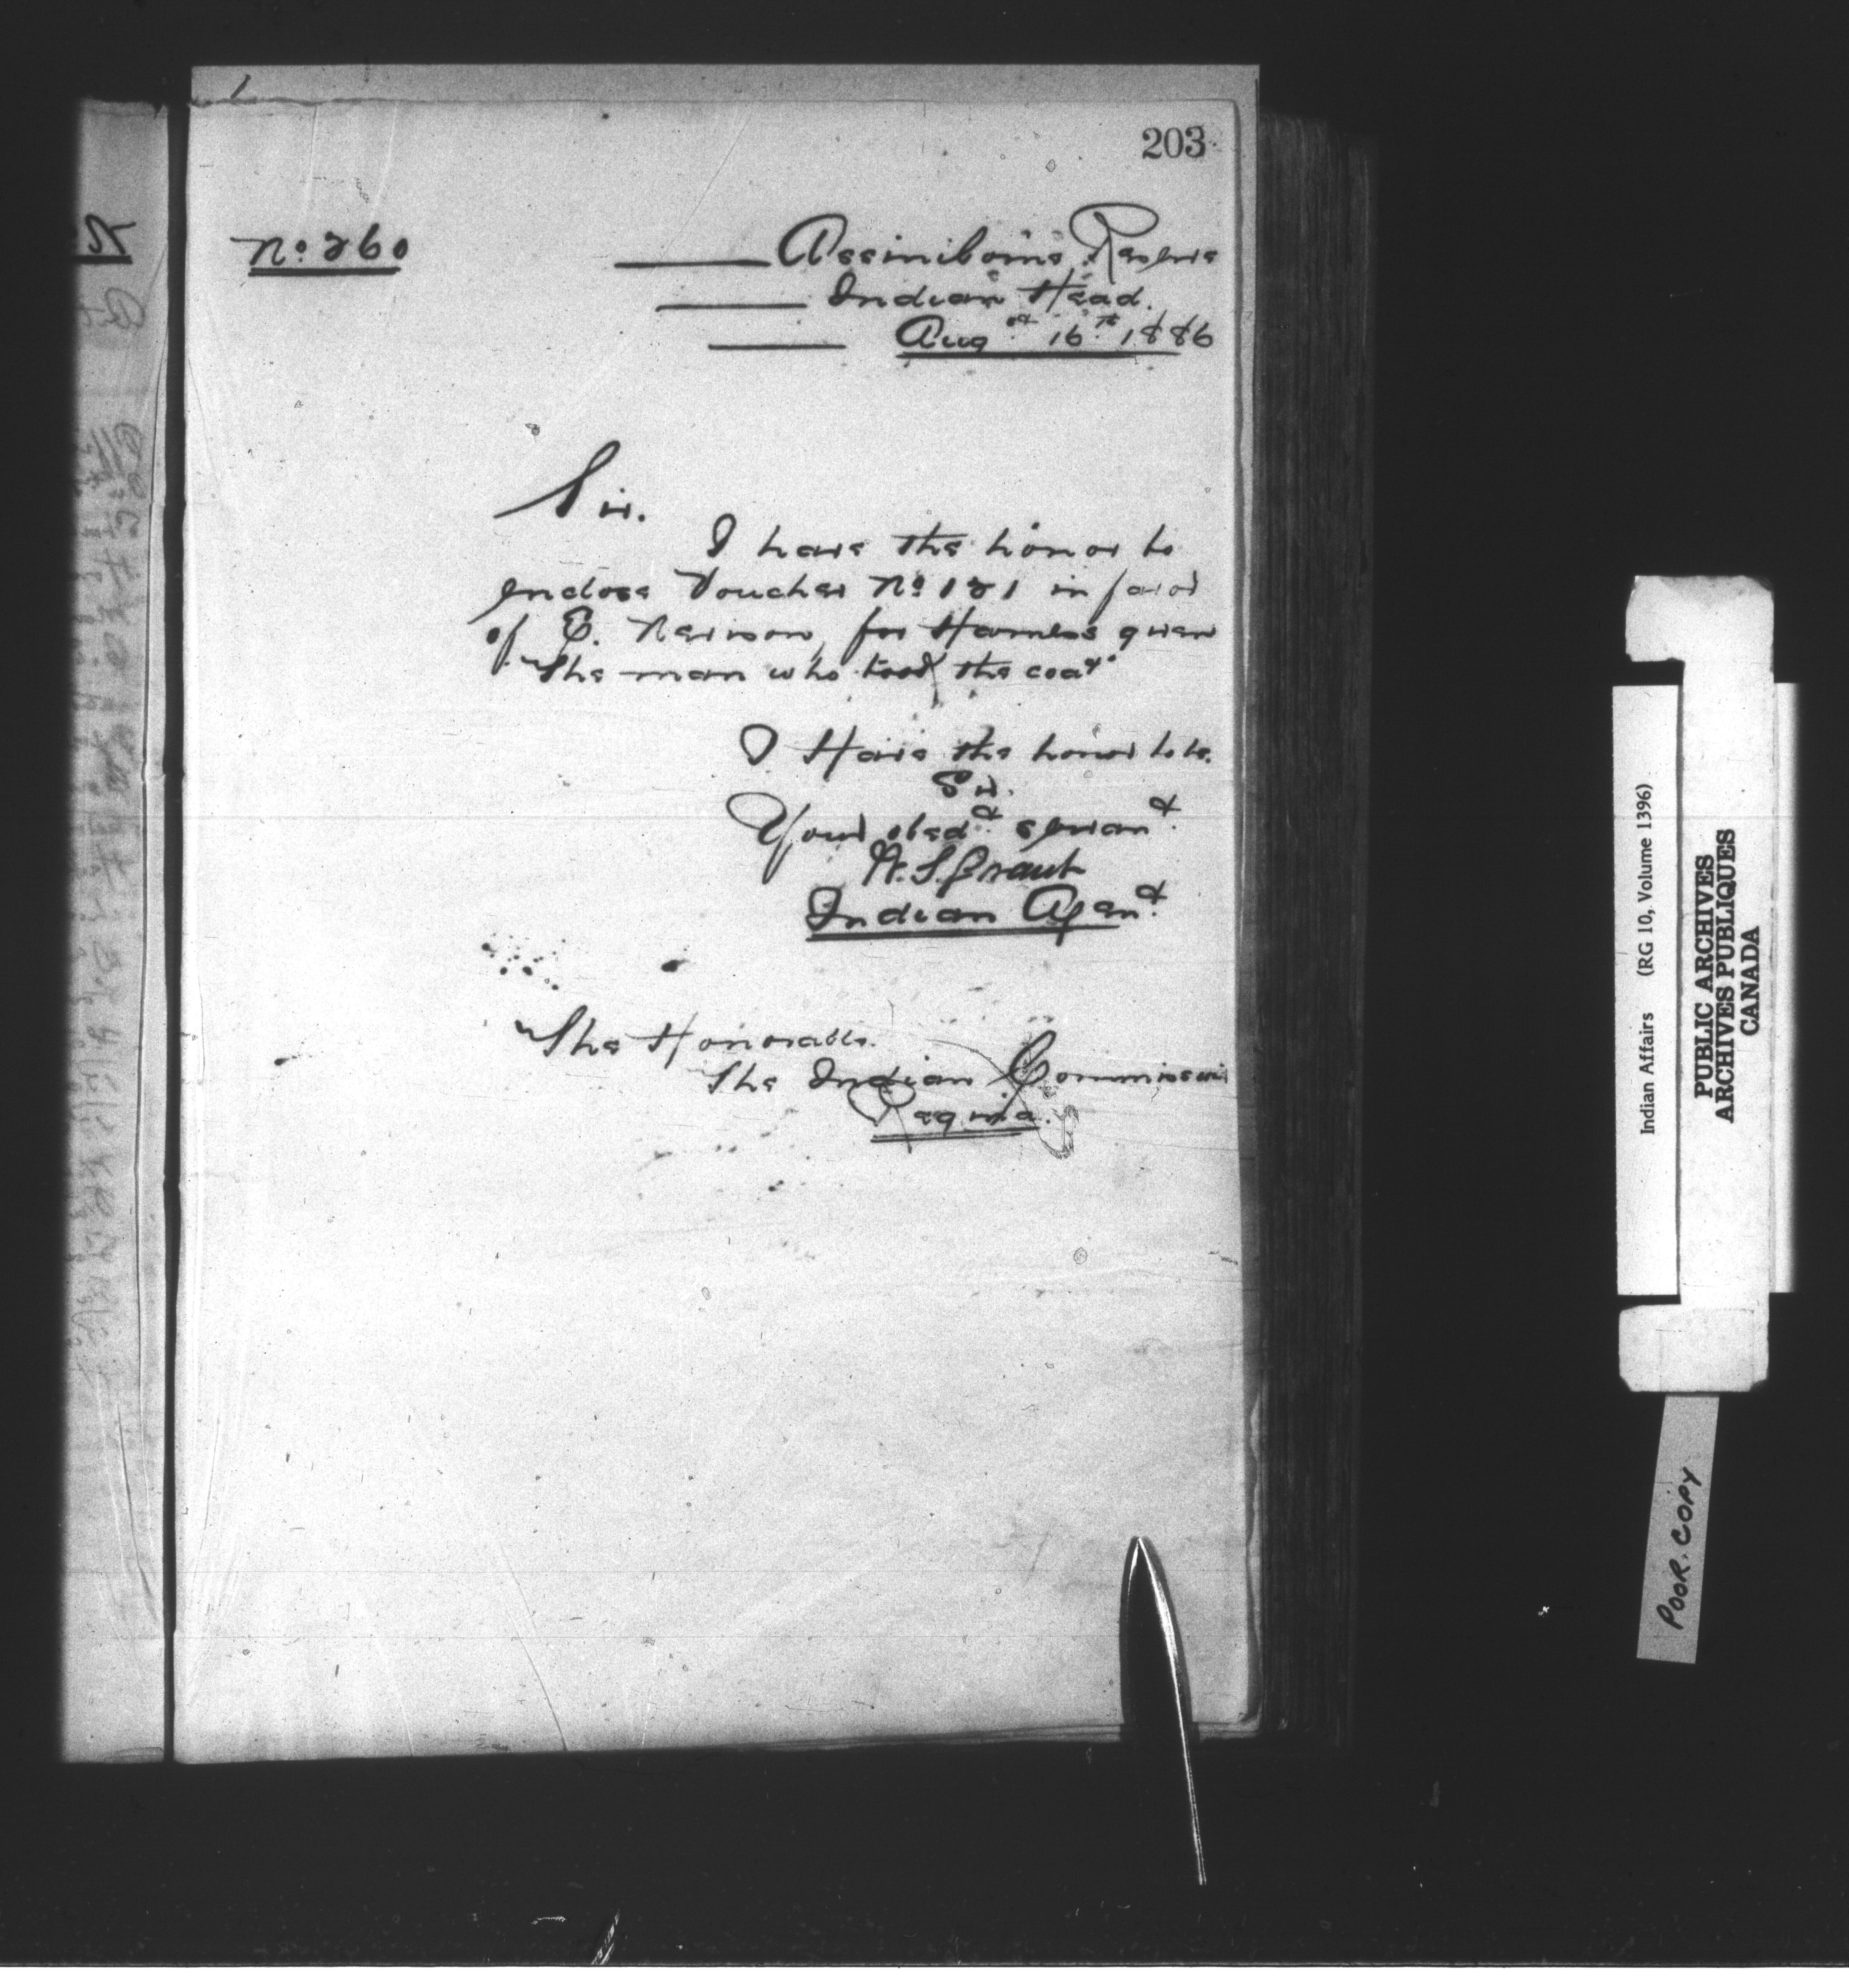 203
No. 260
Assiniboine Reserve
Indian Head.
Augst 16th 1886
Sir.
I have the honor to
enclose Voucher No 121 in favor
of E. Nevison, for Harness given
the man who took the coat
I Have the honor to be.
Sir.
Your obedt servant
W. S. Grant
Indian Agent
The Honorable.
The Indian Commissioner
Regina.
Indian Affairs (RG 10, Volume 1396)
PUBLIC ARCHIVES
ARCHIVES PUBLIQUES
CANADA
POOR COPY